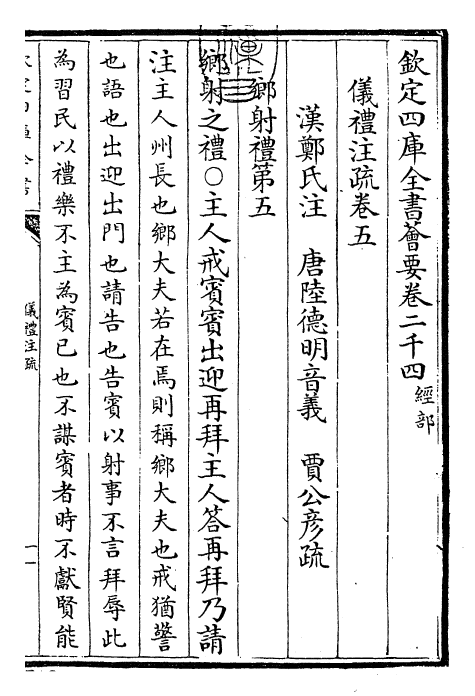 欽定四庫全書薈要卷二千四 經部
儀禮注疏卷五
漢鄭氏注 唐陸德明音義 賈公彦疏
鄉射禮第五
鄉射之禮○主人戒賓賓出迎再拜主人答再拜乃請
注主人州長也鄉大夫若在焉則稱鄉大夫也戒猶警
也語也出迎出門也請告也告賓以射事不言拜辱此
為習民以禮樂不主為賓已也不謀賓者時不獻賢能
儀禮注疏
一